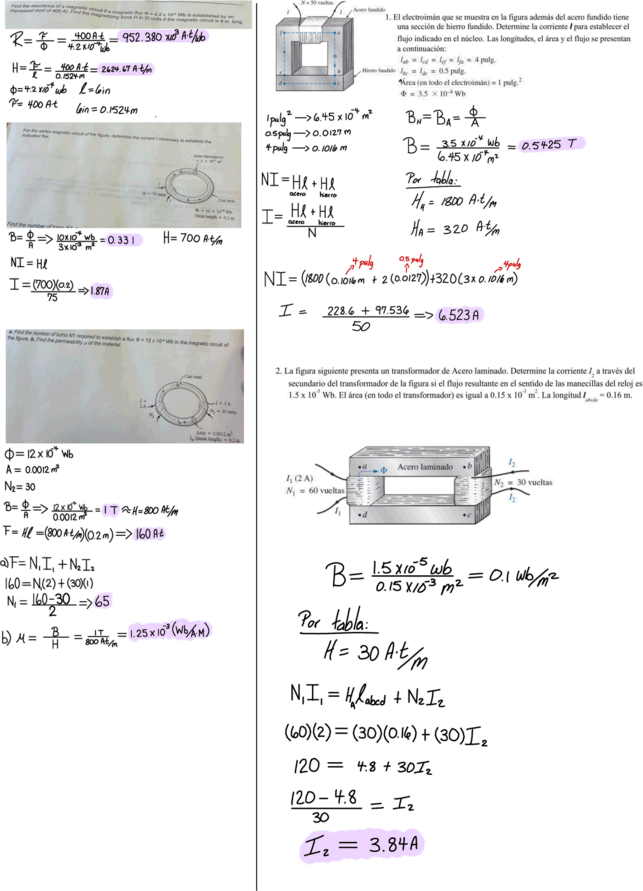 Find the reluctance of a magnetic circuit if a magnetic flux Φ = 4.2 x 10⁻⁴ Wb is established by an
impressed mmf of 400 At. Find the magnetizing force H in SI units if the magnetic circuit is 6 in. long.
R = F/Φ = 400 A·t / 4.2x10⁻⁴ wb = 952.380 x10³ A·t/wb
H = F/l = 400 A·t / 0.1524m = 2624.67 A·t/m
Φ=4.2 x10⁻⁴ wb l = 6in
F= 400 A·t 6in = 0.1524m
For the series magnetic circuit of the figure, determine the current I necessary to establish the
indicated flux.
Area (throughout)
= 3 × 10⁻³ m²
I
N = 75 turns
Cast iron
Φ = 10 × 10⁻⁴ Wb
Mean length = 0.2 m
Find the number of turns
B= Φ/A => 10x10⁻⁴ wb / 3x10⁻³ m² = 0.331 H= 700 A·t/m
NI = Hl
I = (700)(0.2) / 75 => 1.87A
a. Find the number of turns N1 required to establish a flux Φ = 12 x 10⁻⁴ Wb in the magnetic circuit of
the figure. b. Find the permeability μ of the material.
Cast steel
I =
2 A
I = 1 A
N₁
N₂ = 30 turns
Area = 0.0012 m²
lₘ (mean length) = 0.2 m
Φ = 12 x 10⁻⁴ Wb
A = 0.0012 m²
N₂ = 30
B= Φ/A => 12 x 10⁻⁴ wb / 0.0012 m² = 1 T ≈ H=800 At/m
F= Hl = (800 A·t/m)(0.2 m) => 160 A·t
a) F= N₁I₁ + N₂I₂
160 = N₁(2) + (30)(1)
N₁ = 160-30 / 2 => 65
b) μ = B/H = 1T / 800 At/m = 1.25 x 10⁻³ (Wb/A·M)
N = 50 vueltas
I
I
Acero fundido
Hierro fundido
a
b
c
d
e
f
1. El electroimán que se muestra en la figura además del acero fundido tiene
una sección de hierro fundido. Determine la corriente I para establecer el
flujo indicado en el núcleo. Las longitudes, el área y el flujo se presentan
a continuación:
l_ab = l_cd = l_ef = l_fa = 4 pulg.
l_bc = l_de = 0.5 pulg.
Área (en todo el electroimán) = 1 pulg.²
Φ = 3.5 × 10⁻⁴ Wb
1 pulg² → 6.45 x 10⁻⁴ m²
0.5 pulg → 0.0127 m
4 pulg → 0.1016 m
B_H = B_A = Φ/A
B = 3.5 x10⁻⁴ Wb / 6.45 x10⁻⁴ m² = 0.5425 T
NI = Hl acero + Hl hierro
Por tabla:
H_A = 1800 A·t/m
H_A = 320 A·t/m
I = Hl acero + Hl hierro / N
4 pulg 0.5 pulg 4 pulg
NI = (1800(0.1016m + 2(0.0127))+320(3x0.1016m)
I = 228.6 + 97.536 / 50 => 6.523A
2. La figura siguiente presenta un transformador de Acero laminado. Determine la corriente I₂ a través del
secundario del transformador de la figura si el flujo resultante en el sentido de las manecillas del reloj es
1.5 x 10⁻⁵ Wb. El área (en todo el transformador) es igual a 0.15 x 10⁻³ m². La longitud l_abcda = 0.16 m.
a
Φ
Acero laminado
b
I₂
I₁ (2 A)
N₁ = 60 vueltas
N₂ = 30 vueltas
I₂
I₁
d
c
B = 1.5 x10⁻⁵ wb / 0.15 x10⁻³ m² = 0.1 wb/m²
Por tabla:
H = 30 A·t/m
N₁I₁ = H_A l_abcd + N₂I₂
(60)(2) = (30)(0.16) + (30)I₂
120 = 4.8 + 30I₂
120 - 4.8 / 30 = I₂
I₂ = 3.84A